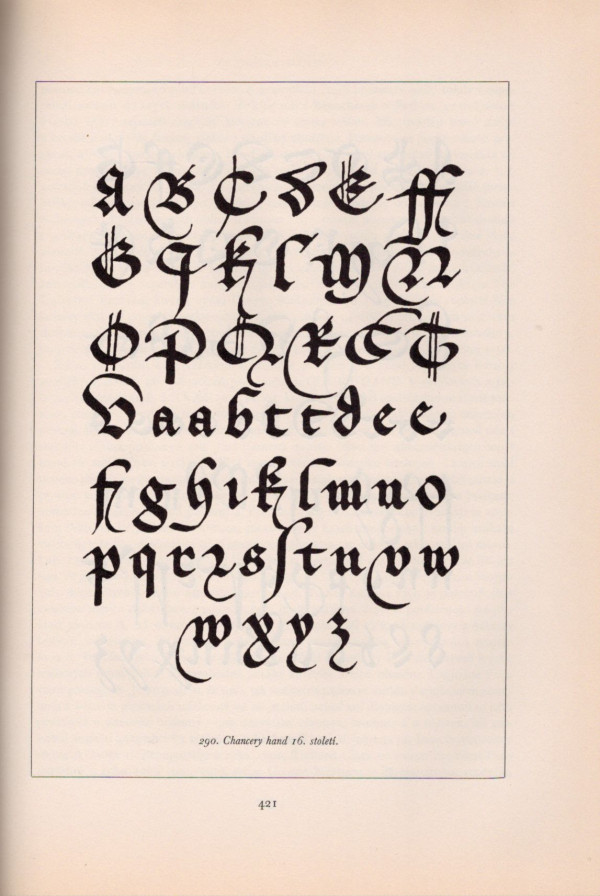 A B C D E ff
G I K L M N
O P Q R S T
V a a b c c d e e
f g h i k l m n o
p q r ꝛ s ſ t u v w
w x y z
290. Chancery hand 16. století.
421